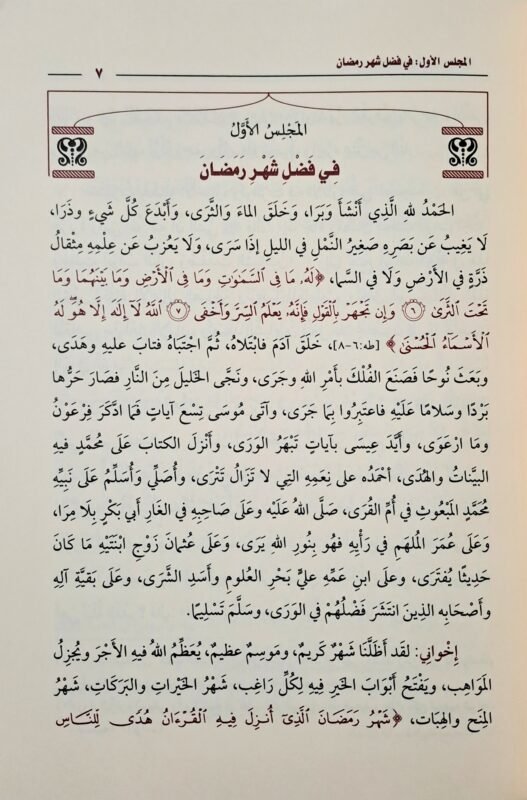 المجلس الأول: في فضل شهر رمضان
٧
المَجْلِسُ الأَوَّلُ
في فَضْلِ شَهْرِ رَمَضَانَ
الحَمْدُ للهِ الَّذِي أَنْشَأَ وَبَرَا، وَخَلَقَ المَاءَ وَالثَّرَى، وَأَبْدَعَ كُلَّ شَيْءٍ وَذَرَا،
لَا يَغِيبُ عَن بَصَرِهِ صَغِيرُ النَّمْلِ في الليلِ إذَا سَرَى، وَلَا يَعْزبُ عَن عِلْمِهِ مِثْقَالُ
ذَرَّةٍ في الأَرْضِ وَلَا في السَّمَا، ﴿لَهُۥ مَا فِى ٱلسَّمَٰوَٰتِ وَمَا فِى ٱلْأَرْضِ وَمَا بَيْنَهُمَا وَمَا
تَحْتَ ٱلثَّرَىٰ ۝٦ وَإِن تَجْهَرْ بِٱلْقَوْلِ فَإِنَّهُۥ يَعْلَمُ ٱلسِّرَّ وَأَخْفَى ۝٧ ٱللَّهُ لَآ إِلَٰهَ إِلَّا هُوَ ۖ لَهُ
ٱلْأَسْمَآءُ ٱلْحُسْنَىٰ﴾ [طه:٦-٨]، خَلَقَ آدَمَ فَابْتَلَاهُ، ثُمَّ اجْتَبَاهُ فتابَ عليهِ وهَدَى،
وبَعَثَ نُوحًا فصَنَعَ الفُلْكَ بِأَمْرِ اللهِ وجَرَى، ونَجَّى الخَلِيلَ مِنَ النَّارِ فصَارَ حَرُّها
بَرْدًا وسَلامًا عَلَيْهِ فاعتَبِرُوا بِمَا جَرَى، وآتَى مُوسَى تِسْعَ آياتٍ فَمَا ادَّكَرَ فِرْعَوْنُ
ومَا ارْعَوَى، وأَيَّدَ عِيسَى بآياتٍ تَبْهَرُ الوَرَى، وأَنْزلَ الكتابَ عَلَى مُحمَّدٍ فيه
البيِّناتُ والهُدَى، أحْمَدُه عَلَى نِعَمِهِ التي لَا تَزَالُ تَتْرَى، وأُصلِّي وأُسَلِّمُ عَلَى نَبِيِّهِ
مُحمَّدٍ المَبْعُوثِ في أُمِّ القُرَى، صَلَّى اللهُ عَلَيْهِ وعَلَى صَاحِبِهِ في الْغَارِ أبي بَكْرٍ بِلَا مِرَا،
وَعَلَى عُمَرَ المُلْهَمِ في رَأيِهِ فهُو بِنُورِ اللهِ يَرَى، وَعَلَى عُثمَانَ زَوْجِ ابْنَتَيْهِ مَا كَانَ
حَدِيثًا يُفتَرَى، وعلَى ابنِ عَمِّهِ عليٍّ بَحْرِ العُلومِ وأَسَدِ الشَّرَى، وعَلَى بَقيَّةِ آلِهِ
وأصْحَابِه الذينَ انتَشَرَ فَضْلُهُمْ في الوَرَى، وسَلَّمَ تَسْلِيمًا.
إخْواني: لقد أَظَلَّنَا شَهْرٌ كَريمٌ، ومَوسِمٌ عظِيمٌ، يُعَظِّمُ اللهُ فيهِ الأَجْرَ ويُجزِلُ
المَوَاهِبَ، ويَفْتَحُ أَبْوَابَ الخَيرِ فِيهِ لِكُلِّ رَاغِبٍ، شَهْرُ الخَيْرَاتِ والبَرَكَاتِ، شَهْرُ
المِنَحِ والهِبَاتِ، ﴿شَهْرُ رَمَضَانَ ٱلَّذِىٓ أُنزِلَ فِيهِ ٱلْقُرْءَانُ هُدًى لِّلنَّاسِ